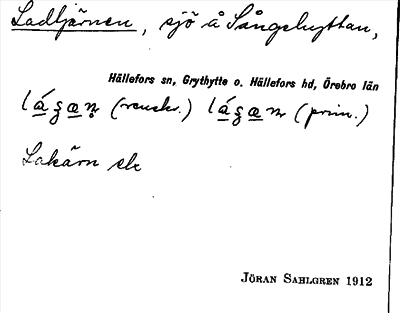 Ladtjärnen, sjö å Sångshyttan,
Hällefors sn, Grythytte o. Hällefors hd, Örebro län
(renskr.) (prim.)
Lakärn ek
JÖRAN SAHLGREN 1912